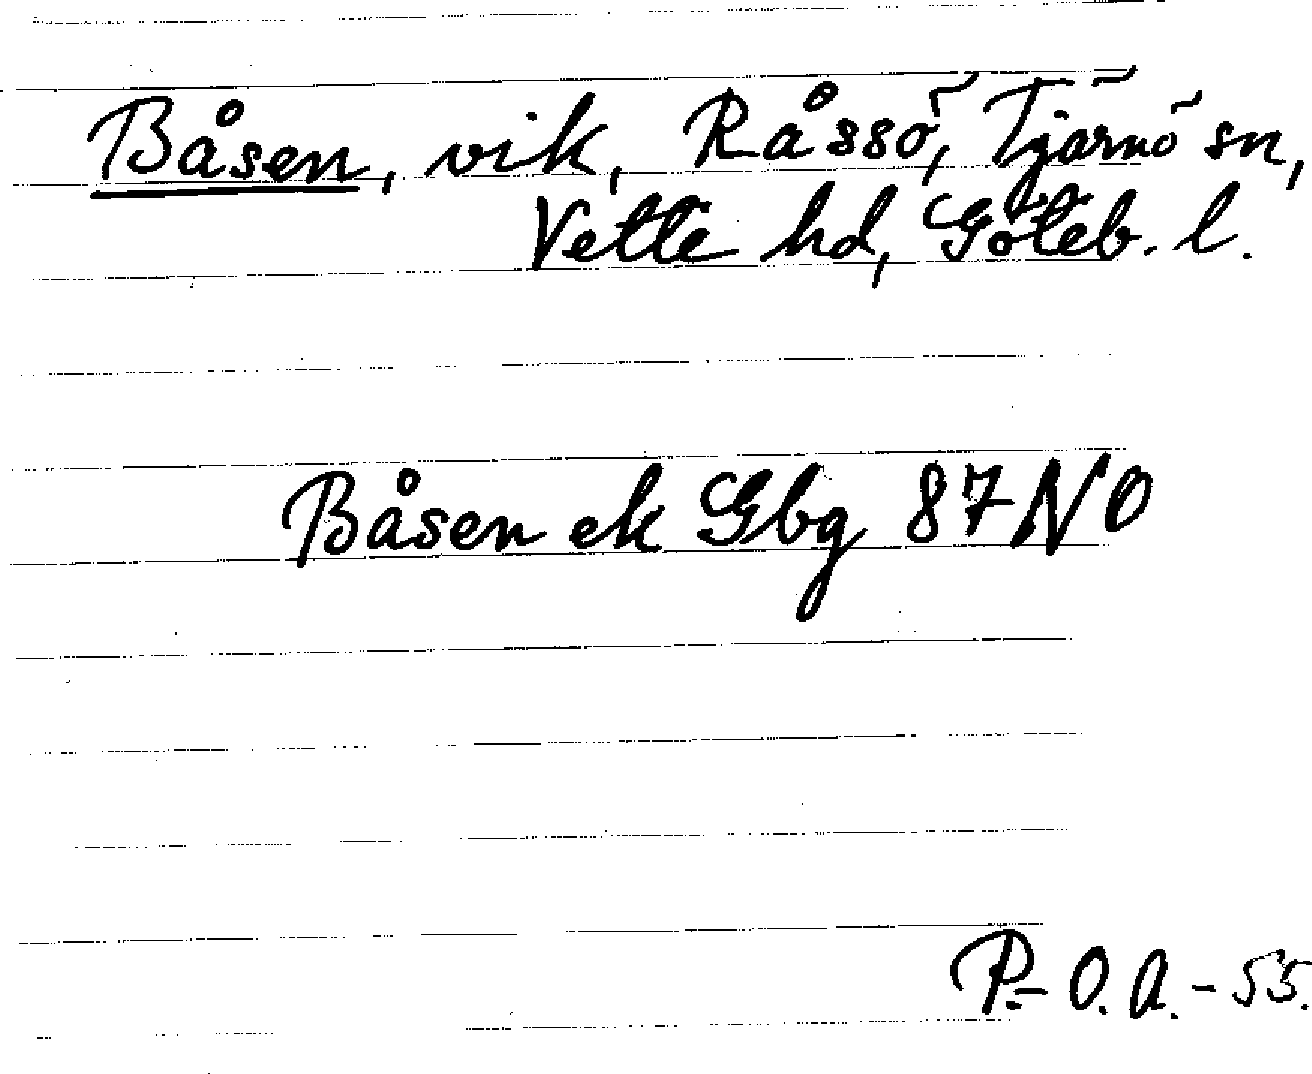 Båsen, vik, Råssö, Tjärnö sn,
Vette hd, Göteb. l.
Båsen ek Gbg 87 NO
P.-O.A.-55.